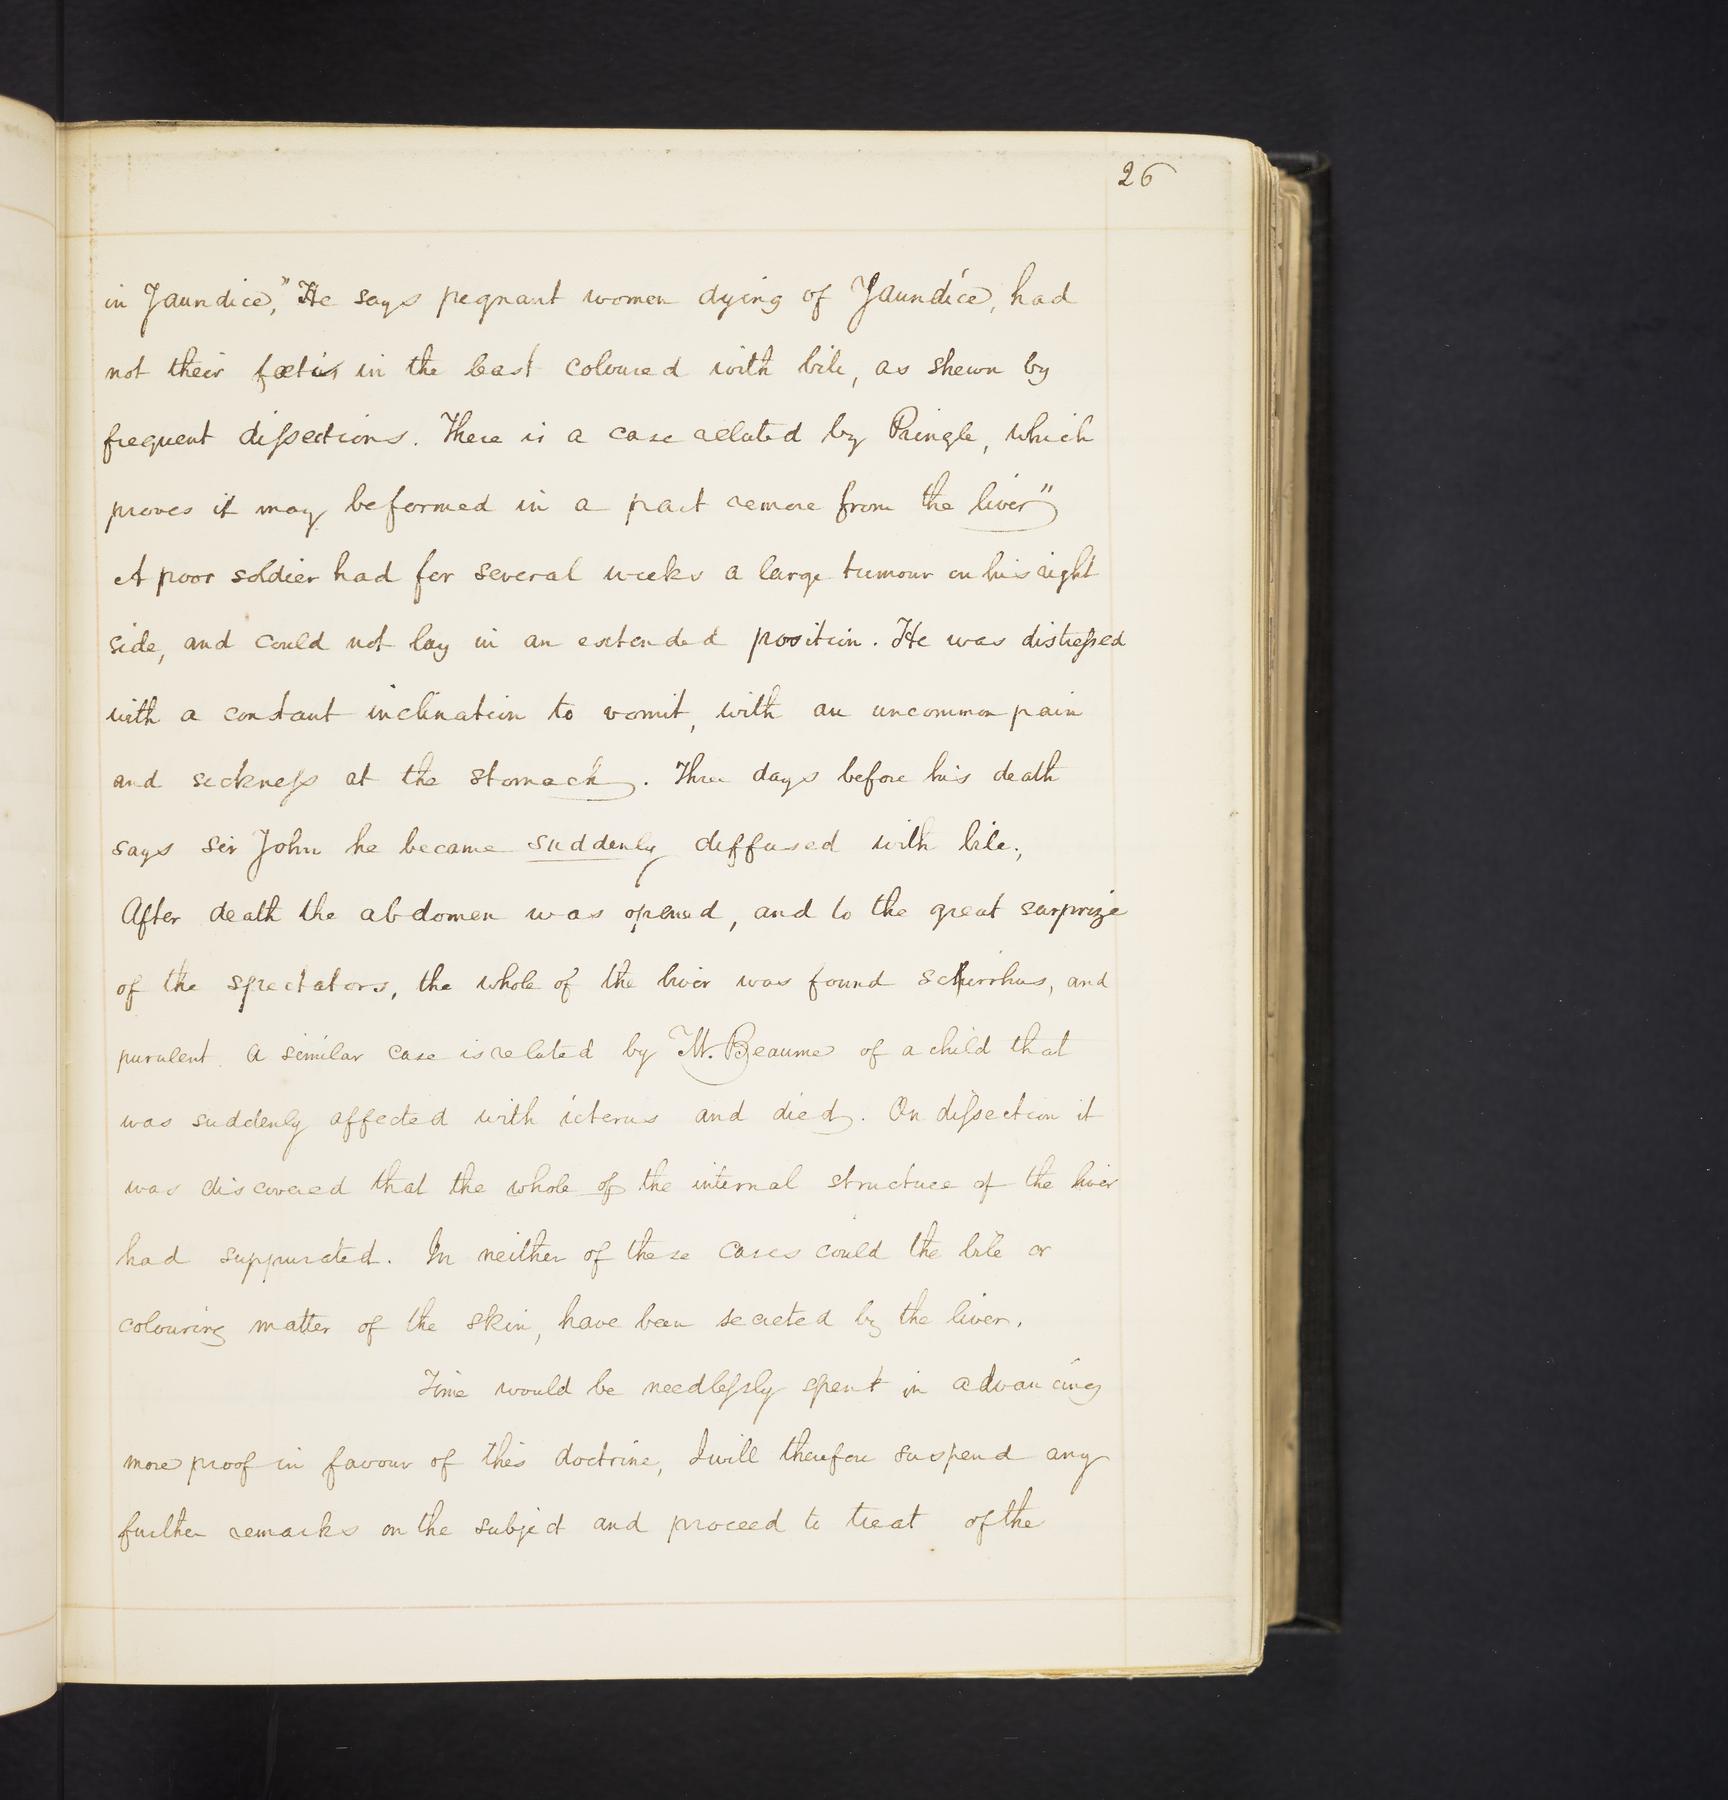 26
in Jaundice," He says pegnant women dying of Jaundice, had
not their fœtis in the least coloured with bile, as shewn by
frequent dissections. There is a case related by Pringle, which
proves it may be formed in a part remore from the liver"
A poor soldier had for several weeks a large tumour on his right
side, and could not lay in an extended position. He was distressed
with a constant inclination to vomit, with an uncommon pain
and sickness at the stomach. Three days before his death
says Sir John he became suddenly deffused with bile;
After death the abdomen was opened, and to the great surprize
of the spectators, the whole of the liver was found schirrhus, and
purulent. A similar case is related by M. Beaume of a child that
was suddenly affected with icterus and died. On dissection it
was discovered that the whole of the internal structure of the liver
had suppurated. In neither of these cases could the bile or
colouring matter of the skin, have been secreted by the liver.
Time would be needlessly spent in advancing
more proof in favour of this doctrine, I will therefore suspend any
further remarks on the subject and proceed to treat of the